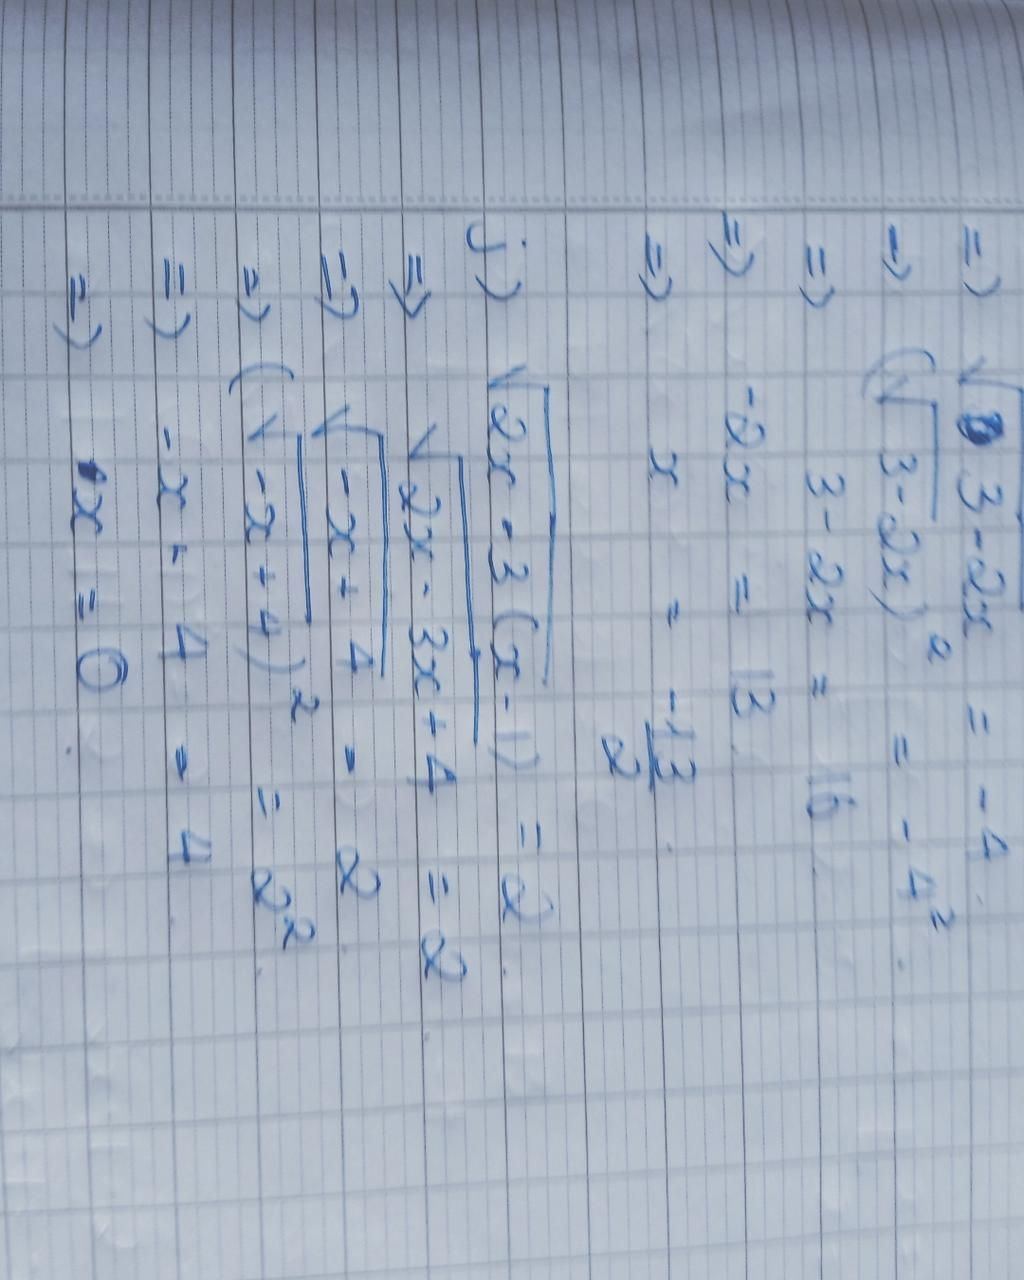 => √3-2x = -4
=> (√3-2x)² = -4²
=> 3-2x = 16
=> -2x = 13
=> x = -13/2
j) √2x-3(x-1) = 2
=> √2x-3x+4 = 2
=> √-x+4 = 2
=> (√-x+4)² = 2²
=> -x+4 = 4
=> x = 0